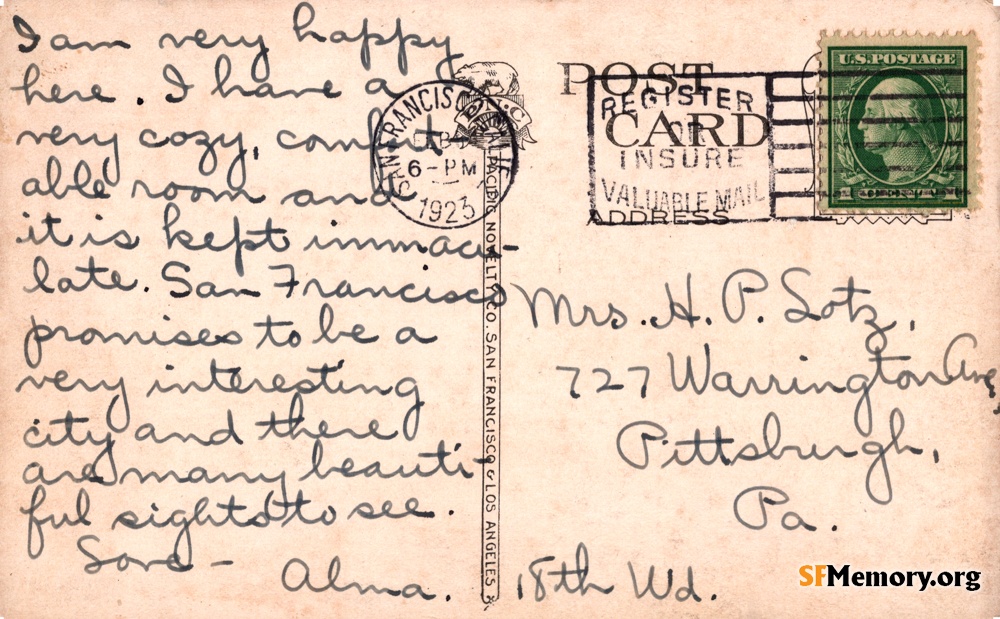 I am very happy
here. I have a
very cozy, comfort
able room and
it is kept immacu-
late. San Francisco
promises to be a
very interesting
city and there
are many beauti-
ful sights to see.
Love -
Alma.
SAN FRANCISCO
6-PM
1923
PACIFIC NOVELTY CO. SAN FRANCISCO & LOS ANGELES
POST
CARD
REGISTER
OR
INSURE
VALUABLE MAIL
ADDRESS
U.S. POSTAGE
1 CENT 1
Mrs. H. P. Lotz,
727 Warrington Ave,
Pittsburgh,
Pa.
18th Wd.
SFMemory.org